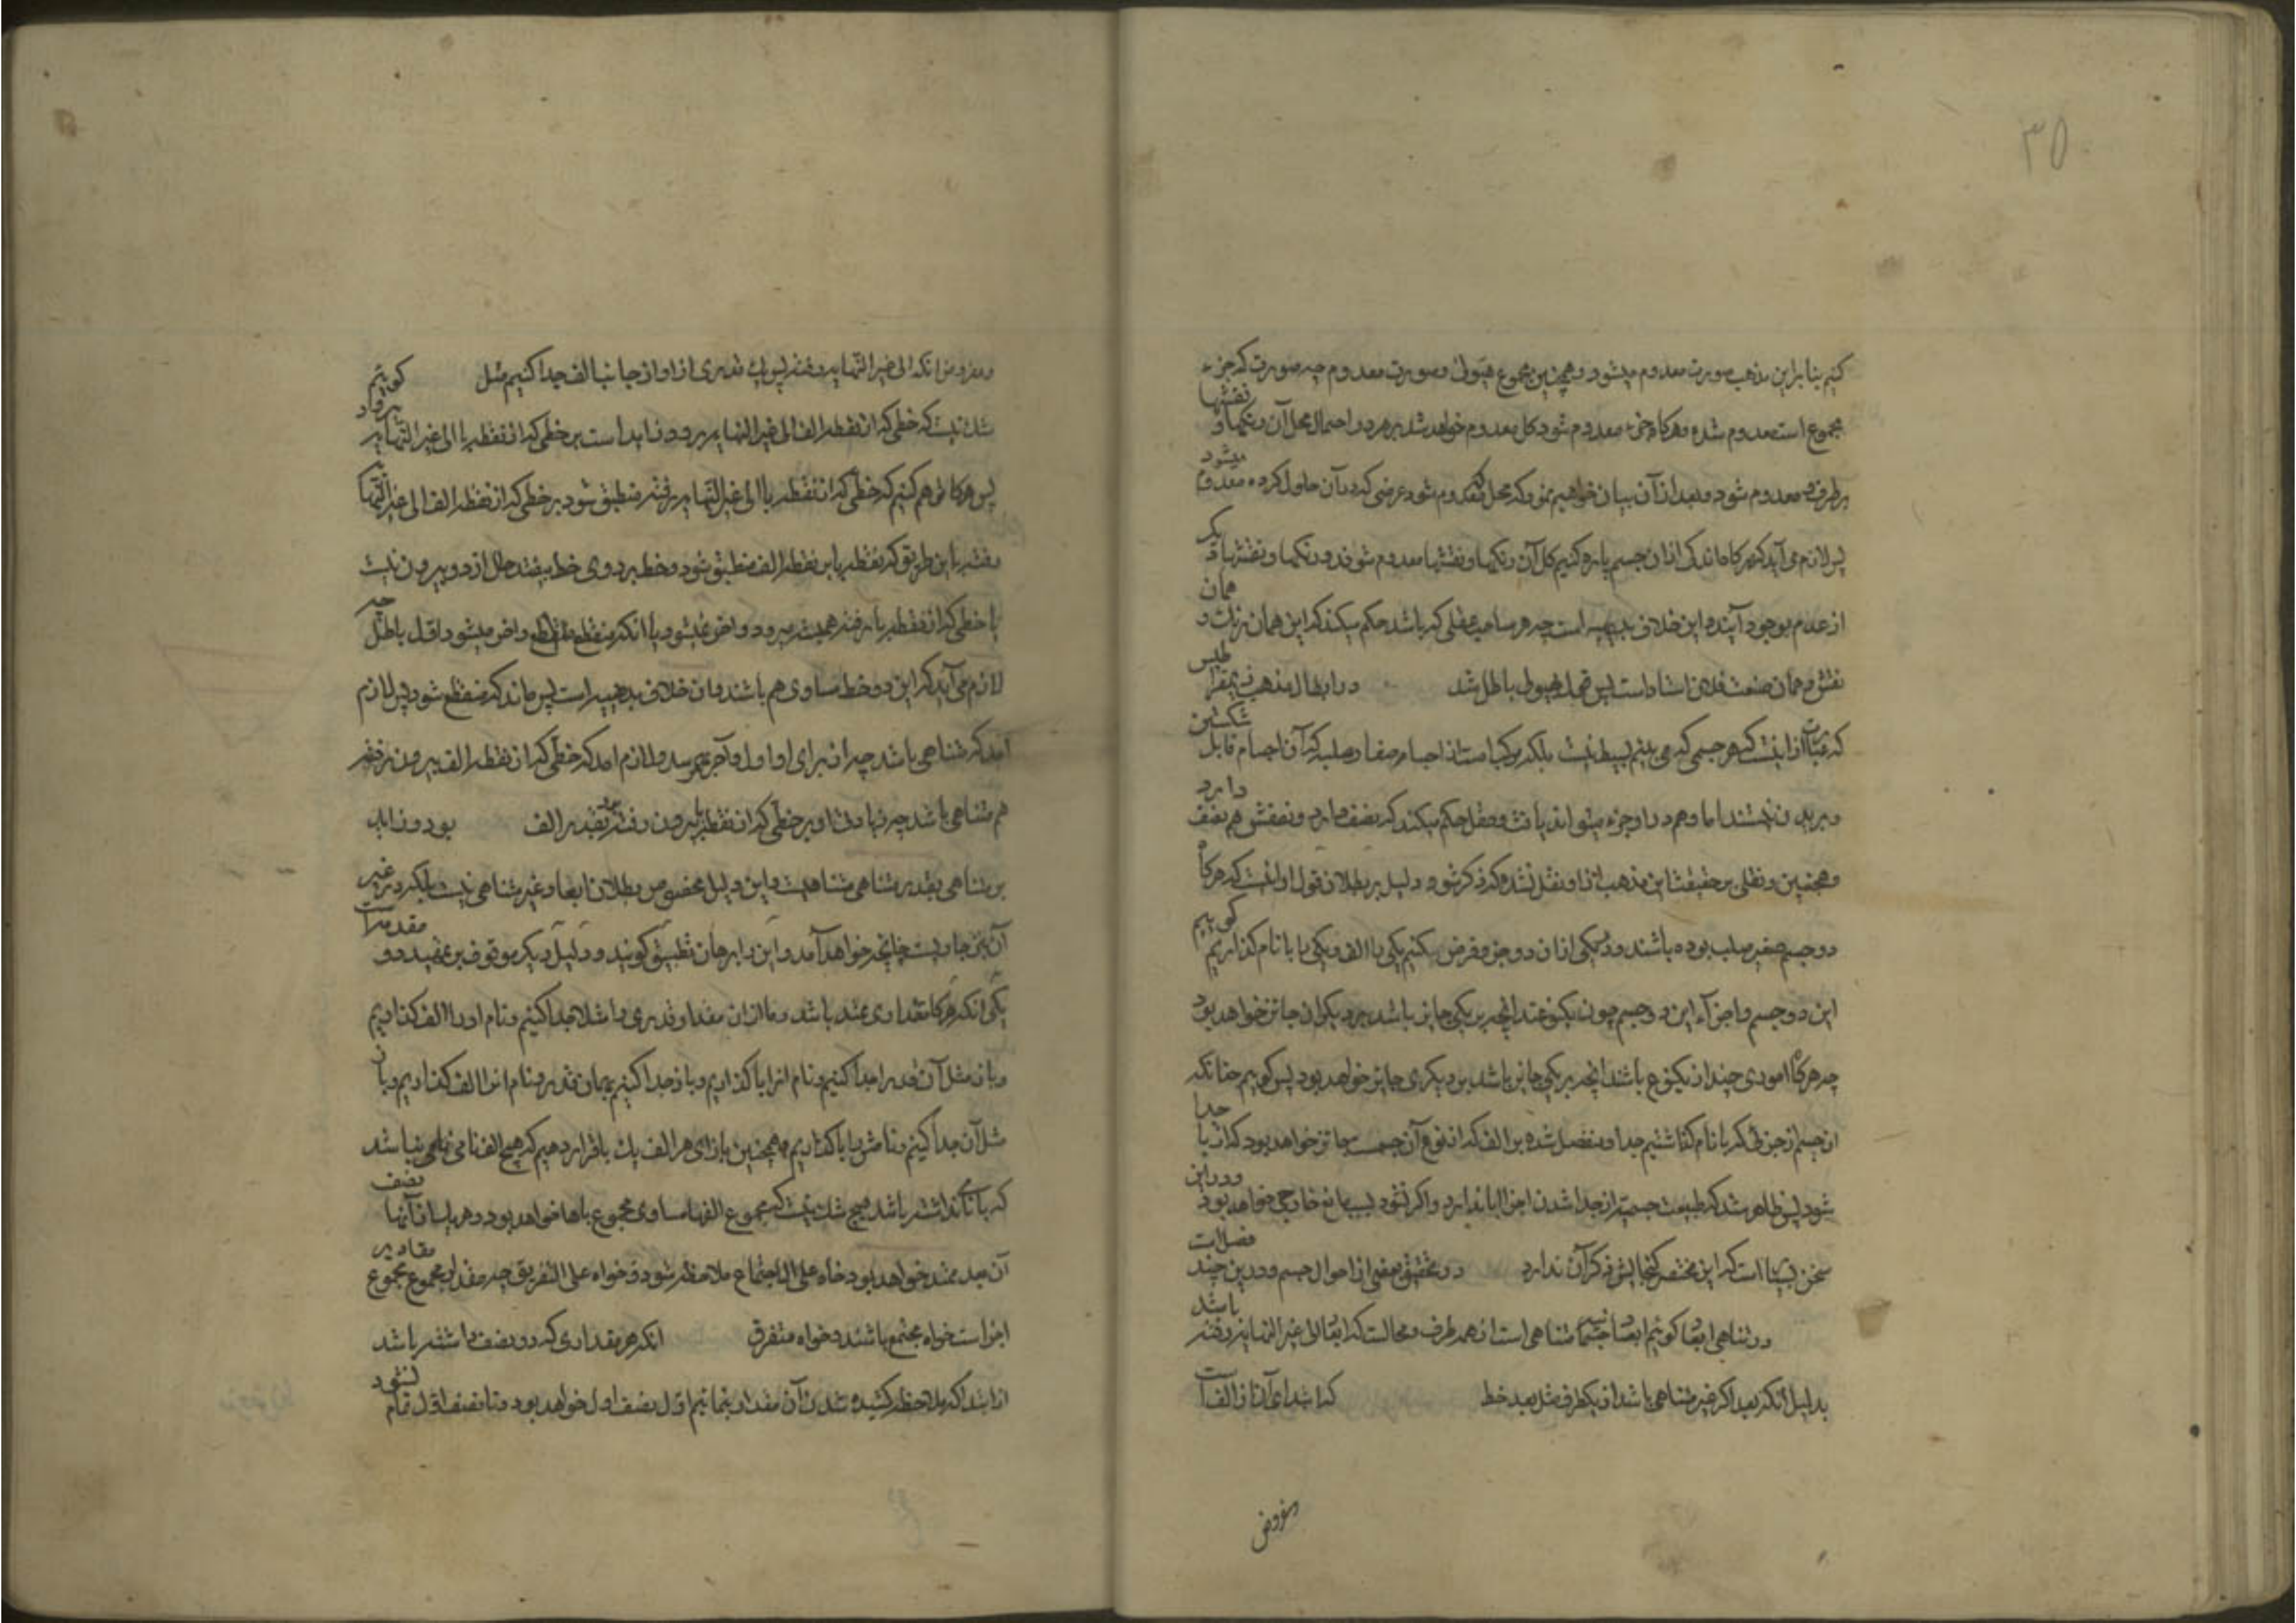 ۳۵
کنیم بنا برین مذهب صورت معدوم میشود و همچنین مجموع هیولی و صورت معدوم چه صورت که جزء
مجموع است معدوم شده و هرکاه جزء معدوم شود کل معدوم خواهد شد بر هر دو احتمال محل آن رنکها و نقشها
بر طرف و معدوم شود و بعد از آن بیان خواهیم نمود که محل که معدوم شود عرضی که در آن حلول کرده معدوم میشود
پس لازم می آید که هرکاه اندک از آن جسم پاره کنیم کل آن رنکها و نقشها معدوم شوند و رنکها و نقشهای دیکر
از عدم بوجود آیند و این خلاف بدیهه است چه هر صاحب عقلی که باشد حکم میکند که این همان رنک و همان
نقش و همان صنعت فلان استاد است پس محل هیولی باطل شد در ابطال مذهب ذیمقراطیس
که عبارت از اینست که هر جسمی که می بینم بسیط نیست بلکه مرکب است از اجسام صغار صلبه که آن اجسام قابل شکستن
و بریدن نیستند اما وهم در او جزء میتواند یافت و عقل حکم میکند که نصف دارد و نصفش هم نصف دارد
و همچنین و نقلی بر حقیقت این مذهب از او نقل نشده که ذکر شود و دلیل بر بطلان قول او اینست که هرکاه
دو جسم صغیر صلب بوده باشند و در یکی از آن دو جزو فرض کنیم یکی را الف و یکی را با نام کذاریم کوییم
این دو جسم و اجزآء این دو جسم چون یکنوعند آنچه بر یکی جایز باشد بر دیکران جائز خواهد بود
چه هرکاه امودی چند از یکنوع باشند آنچه بر یکی جایز باشد بر دیکری جایز خواهد بود پس کوییم چنانکه
آن جسم از جزئی که با نام کذاشتیم جدا و منفصل شده بر الف که از نوع آن جسم است جائز خواهد بود که از با جدا
شود پس ظاهر شد که طبیعت جسمیت از جدا شدن اجزا ابا ندارد و اکر نشود بسبب مانع خارجی خواهد بود و در این
سخن بسیار است که این مختصر کنجایش ذکر آن ندارد در تحقیق بعضی از احوال جسم و در این چند فصل است
در تناهی ابعاد کوئیم ابعاد جسمانیه متناهی است از همه طرف و محالست که ابعاد الی غیر النهایه رفته باشد
بدلیل آنکه بعد اکر غیر متناهی باشد از یکطرف مثل بعد خط که ابتدای آن از الف است
مفروض
و مفروض آنکه الی غیر النهایه رفته پس یک قدری از او از جانب الف جدا کنیم مثل کوییم
شک نیست که خطی که از نقطه الف الی غیر النهایه میرود زاید است بر خطی که از نقطه با الی غیر النهایه میرود
پس هرکاه توهم کنیم که خطی که از نقطه با الی غیر النهایه رفته منطبق شود بر خطی که از نقطه الف الی غیر النهایه
رفته باین طریق که نقطه با بر نقطه الف منطبق شود و خط بر روی خط بیفتد حال از دو بیرون نیست
یا خطی که از نقطه با رفته همیشه میرود و آخر نمیشود یا آنکه منقطع و آخر میشود اول باطل چه
لازم می آید که این دو خط مساوی هم باشند و آن خلاف بدیهه است پس ماند که منقطع شود پس لازم
آمد که متناهی باشد چه از برای او اول و آخر بهم رسد و لازم آمد که خطی که از نقطه الف بیرون رفته
هم متناهی باشد چه زیادتی او بر خطی که از نقطه با بیرون رفته بقدر الف بود و زاید
بر متناهی بقدر متناهی متناهیست و این دلیل مخصوص بطلان ابعاد غیر متناهی نیست بلکه در غیر
آن نیز جاریست چنانچه خواهد آمد و این را برهان تطبیق کویند و دلیل دیکر موقوف بر تمهید دو مقدمه است
یکی آنکه هرکاه مقداری ممتد باشد و ما از آن مقدار قدری را مثلا جدا کنیم و نام او را الف کذاریم
و باز مثل آن قدر را جدا کنیم و نام آنرا با کذاریم و باز جدا کنیم بهمان قدر و نام آنرا الف کذاریم و باز
مثل آن جدا کنیم و نامش را با کذاریم و همچنین بازای هر الف یک با قرار دهیم که هیچ الف نامی نباشد
که با نامی نداشته باشد هیچ شک نیست که مجموع الفها مساوی مجموع باها خواهد بود و هر یک از آنها نصف
آن بعد ممتد خواهد بود خواه علی الاجتماع ملاحظه شود و خواه علی التفریق چه مقدار مجموع مجموع مقادیر
اجزاست خواه مجتمع باشند و خواه متفرق آنکه هر مقداری که دو نصف داشته باشد
از ابتدا که ملاحظه کشیده شدن آن مقدار بنمائیم اول نصف اول خواهد بود و تا نصف اول تمام نشود